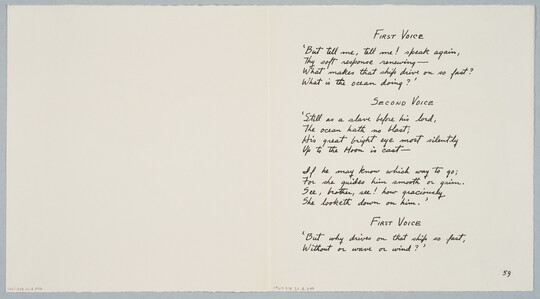 First Voice
'But tell me, tell me! speak again,
Thy soft response renewing—
What makes that ship drive on so fast?
What is the ocean doing?'
Second Voice
'Still as a slave before his lord,
The ocean hath no blast;
His great bright eye most silently
Up to the Moon is cast—
If he may know which way to go;
For she guides him smooth or grim.
See, brother, see! how graciously
She looketh down on him.'
First Voice
'But why drives on that ship so fast,
Without or wave or wind?'
59